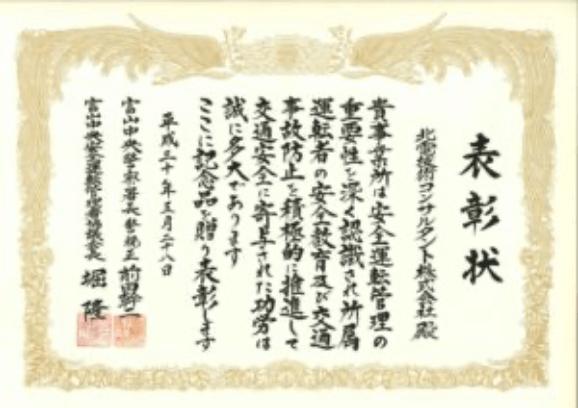 表彰状
北電技術コンサルタント株式会社 殿
貴事業所は安全運転管理の
重要性を深く認識され所属
運転者の安全教育及び交通
事故防止を積極的に推進して
交通安全に寄与された功労は
誠に多大であります
ここに記念品を贈り表彰します
平成三十年三月二十八日
富山中央警察署長 警視正 前田 静二
富山中央安全運転管理者協議会長 堀 隆